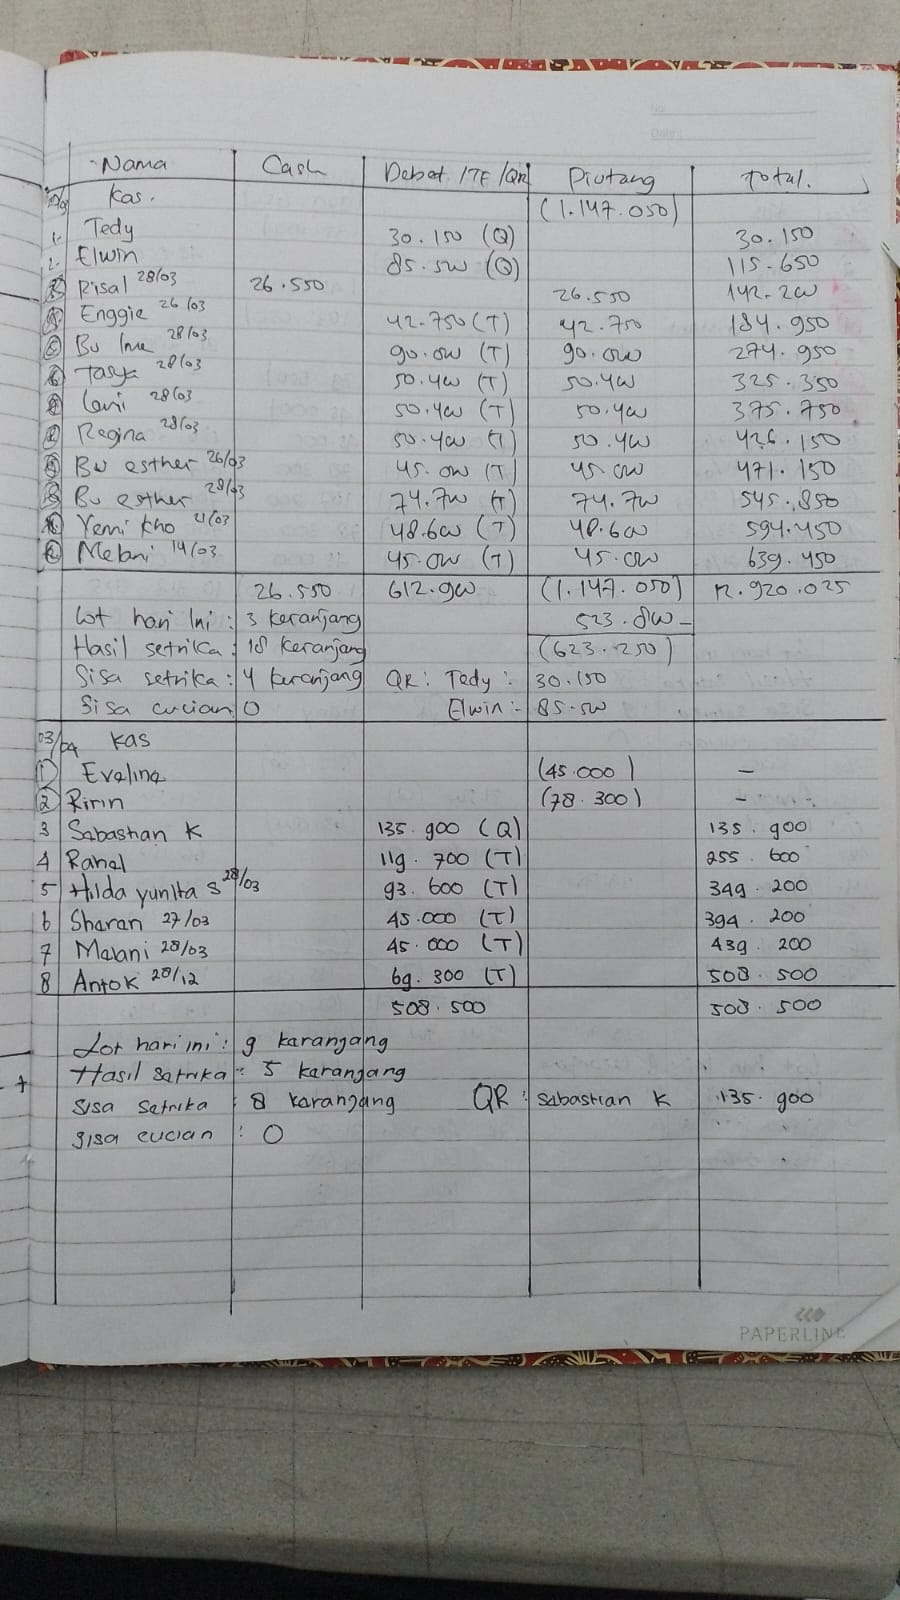 No
Date:
Nama Cash Debet /TF /QR Piutang Total.
Kas. (1.147.050)
1. Tedy 30.150 (Q) 30.150
2. Elwin 85.500 (Q) 115.650
Risal 28/03 26.550 26.550 142.200
Enggie 26/03 42.750 (T) 42.750 184.950
Bu 28/03 90.000 (T) 90.000 274.950
Tasya 28/03 50.400 (T) 50.400 325.350
28/03 50.400 (T) 50.400 375.750
Regina 28/03 50.400 (T) 50.400 426.150
Bu esther 26/03 45.000 (T) 45.000 471.150
Bu esther 28/03 74.700 (T) 74.700 545.850
Yenni kho 21/03 48.600 (T) 48.600 594.450
Melani 14/03 45.000 (T) 45.000 639.450
26.550 612.900 (1.147.050) 12.920.025
Lot hari Ini : 3 keranjang 523.800 -
Hasil setrika : 18 keranjang (623.250)
Sisa setrika : 4 keranjang QR : Tedy : 30.150
Sisa cucian : 0 Elwin :- 85.500
03/04 kas
1 Evelina (45.000) -
2 Ririn (78.300) -
3 Sabastian K 135.900 (Q) 135.900
4 Rahel 119.700 (T) 255.600
5 Hilda yunita S 28/03 93.600 (T) 349.200
6 Sharan 27/03 45.000 (T) 394.200
7 Melani 28/03 45.000 (T) 439.200
8 Antok 28/12 69.300 (T) 508.500
508.500 508.500
Lot hari ini : 9 karanjang
Hasil satrika : 5 karanjang
Sisa Satrika : 8 karanjang QR : Sabastian K 135.900
Sisa cucian : 0
PAPERLINE